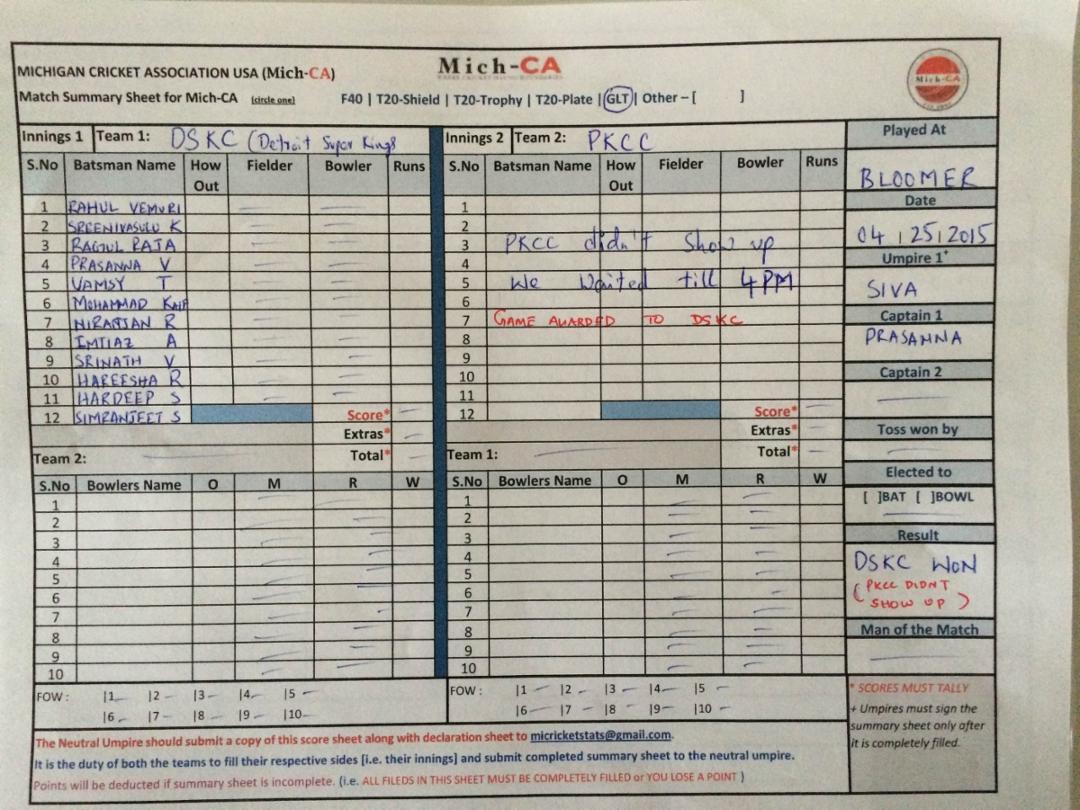 MICHIGAN CRICKET ASSOCIATION USA (Mich-CA)
Mich-CA
Mich-CA
Match Summary Sheet for Mich-CA (circle one) F40 | T20-Shield | T20-Trophy | T20-Plate | GLT | Other – [ ]
Innings 1 Team 1: DSKC (Detroit Super Kings
S.No Batsman Name How Out Fielder Bowler Runs
1 RAHUL VEMURI
2 SREENIVASULU K
3 RAGJUL RAJA
4 PRASANNA V
5 VAMSY T
6 MOHAMMAD KAIF
7 NIRANJAN R
8 IMTIAZ A
9 SRINATH V
10 HAREESHA R
11 HARDEEP S
12 SIMRANJEET S Score* –
Extras* –
Team 2: Total* –
S.No Bowlers Name O M R W
1
2
3
4
5
6
7
8
9
10
FOW : |1 – |2 – |3 – |4 – |5 –
|6 – |7 – |8 – |9 – |10 –
Innings 2 Team 2: PKCC
S.No Batsman Name How Out Fielder Bowler Runs
1
2
3 PKCC didn't Show up
4
5 We Waited till 4PM
6
7 GAME AWARDED TO DSKC
8
9
10
11
12 Score* –
Extras* –
Team 1: Total* –
S.No Bowlers Name O M R W
1
2
3
4
5
6
7
8
9
10
FOW : |1 – |2 – |3 – |4 – |5 –
|6 – |7 – |8 – |9 – |10 –
Played At
BLOOMER
Date
04 | 25 | 2015
Umpire 1+
SIVA
Captain 1
PRASANNA
Captain 2
Toss won by
Elected to
[ ]BAT [ ]BOWL
Result
DSKC WON
(PKCC DIDNT
SHOW UP)
Man of the Match
* SCORES MUST TALLY
+ Umpires must sign the
summary sheet only after
it is completely filled.
The Neutral Umpire should submit a copy of this score sheet along with declaration sheet to micricketstats@gmail.com.
It is the duty of both the teams to fill their respective sides [i.e. their innings] and submit completed summary sheet to the neutral umpire.
Points will be deducted if summary sheet is incomplete. (i.e. ALL FILEDS IN THIS SHEET MUST BE COMPLETELY FILLED or YOU LOSE A POINT )